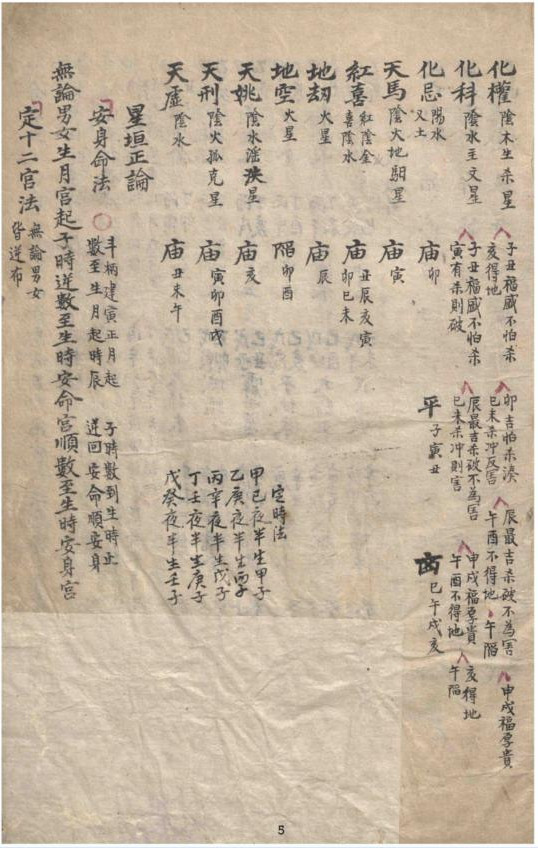 化權 陰木生杀星 子丑福盛不怕杀 卯吉怕杀湊 辰最吉杀破不為害 申戌福厚貴
亥得地 巳未杀冲反害 午酉不得地 午陷
化科 陰水主文星 子丑福盛不怕杀 辰最吉杀破不為害 申戌福厚貴 亥得地
寅有杀則破 巳未杀冲則害 午酉不得地 午陷
化忌 陽水又土 庙 卯 平 子寅丑 凶 巳午戌亥
天馬 陰火地駟星 庙 寅
紅喜 紅陰金 喜陰水 庙 丑辰亥寅 卯巳未
地劫 火星 庙 辰
地空 火星 陷 卯酉
天姚 陰水淫泆星 庙 亥
天刑 陰火孤克星 庙 寅卯酉戌
天虛 陰水 庙 丑未午
定時法
甲巳夜半生甲子
乙庚夜半生丙子
丙辛夜半生戊子
丁壬夜半生庚子
戊癸夜半生壬子
星垣正論
安身命法 斗柄建寅正月起 子時數到生時止
數至生月起時辰 逆回安命順安身
無論男女生月宫起子時逆數至生時安命宫順數至生時安身宫
定十二宫法 無論男女
皆逆布
5